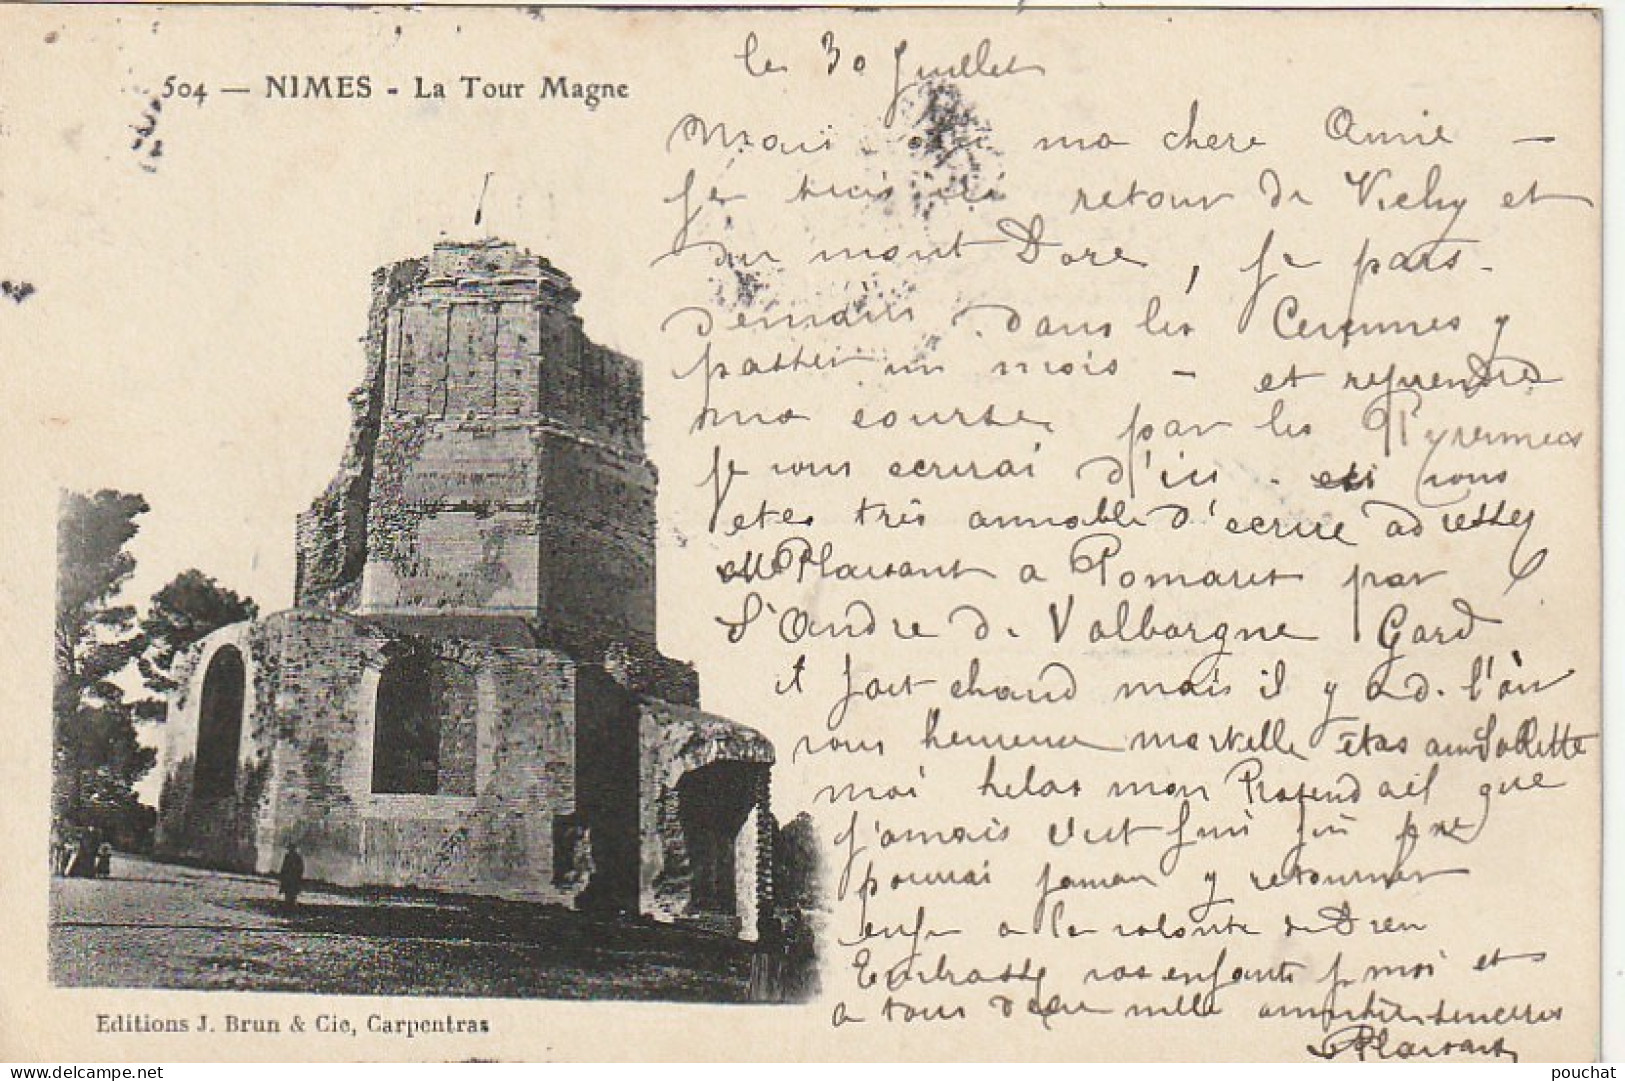 504 — NIMES - La Tour Magne
le 30 Juillet
Mais oui ma chere Amie —
Je suis ici retour de Vichy et
du mont Dore, Je pars -
demain dans les Cevennes y
passer un mois - et reprendre
ma course par les Pyrennees
Je vous ecrirai d'ici - et si vous
etes très aimable d'ecrire adressez
Mlle Plaisant a Pomaret par
St Andre de Valborgne Gard
it fait chaud mais il y a d. l'air
vous heureuse mortelle êtes au
moi helas mon que
J'amais c'est fini ne
pourrai Jamais y retourner
enfin a la volonte de Dieu
Embrassez vos enfants p. moi et
a tous deux mille amitiés sinceres
Plaisant
Editions J. Brun & Cie, Carpentras
pouchat